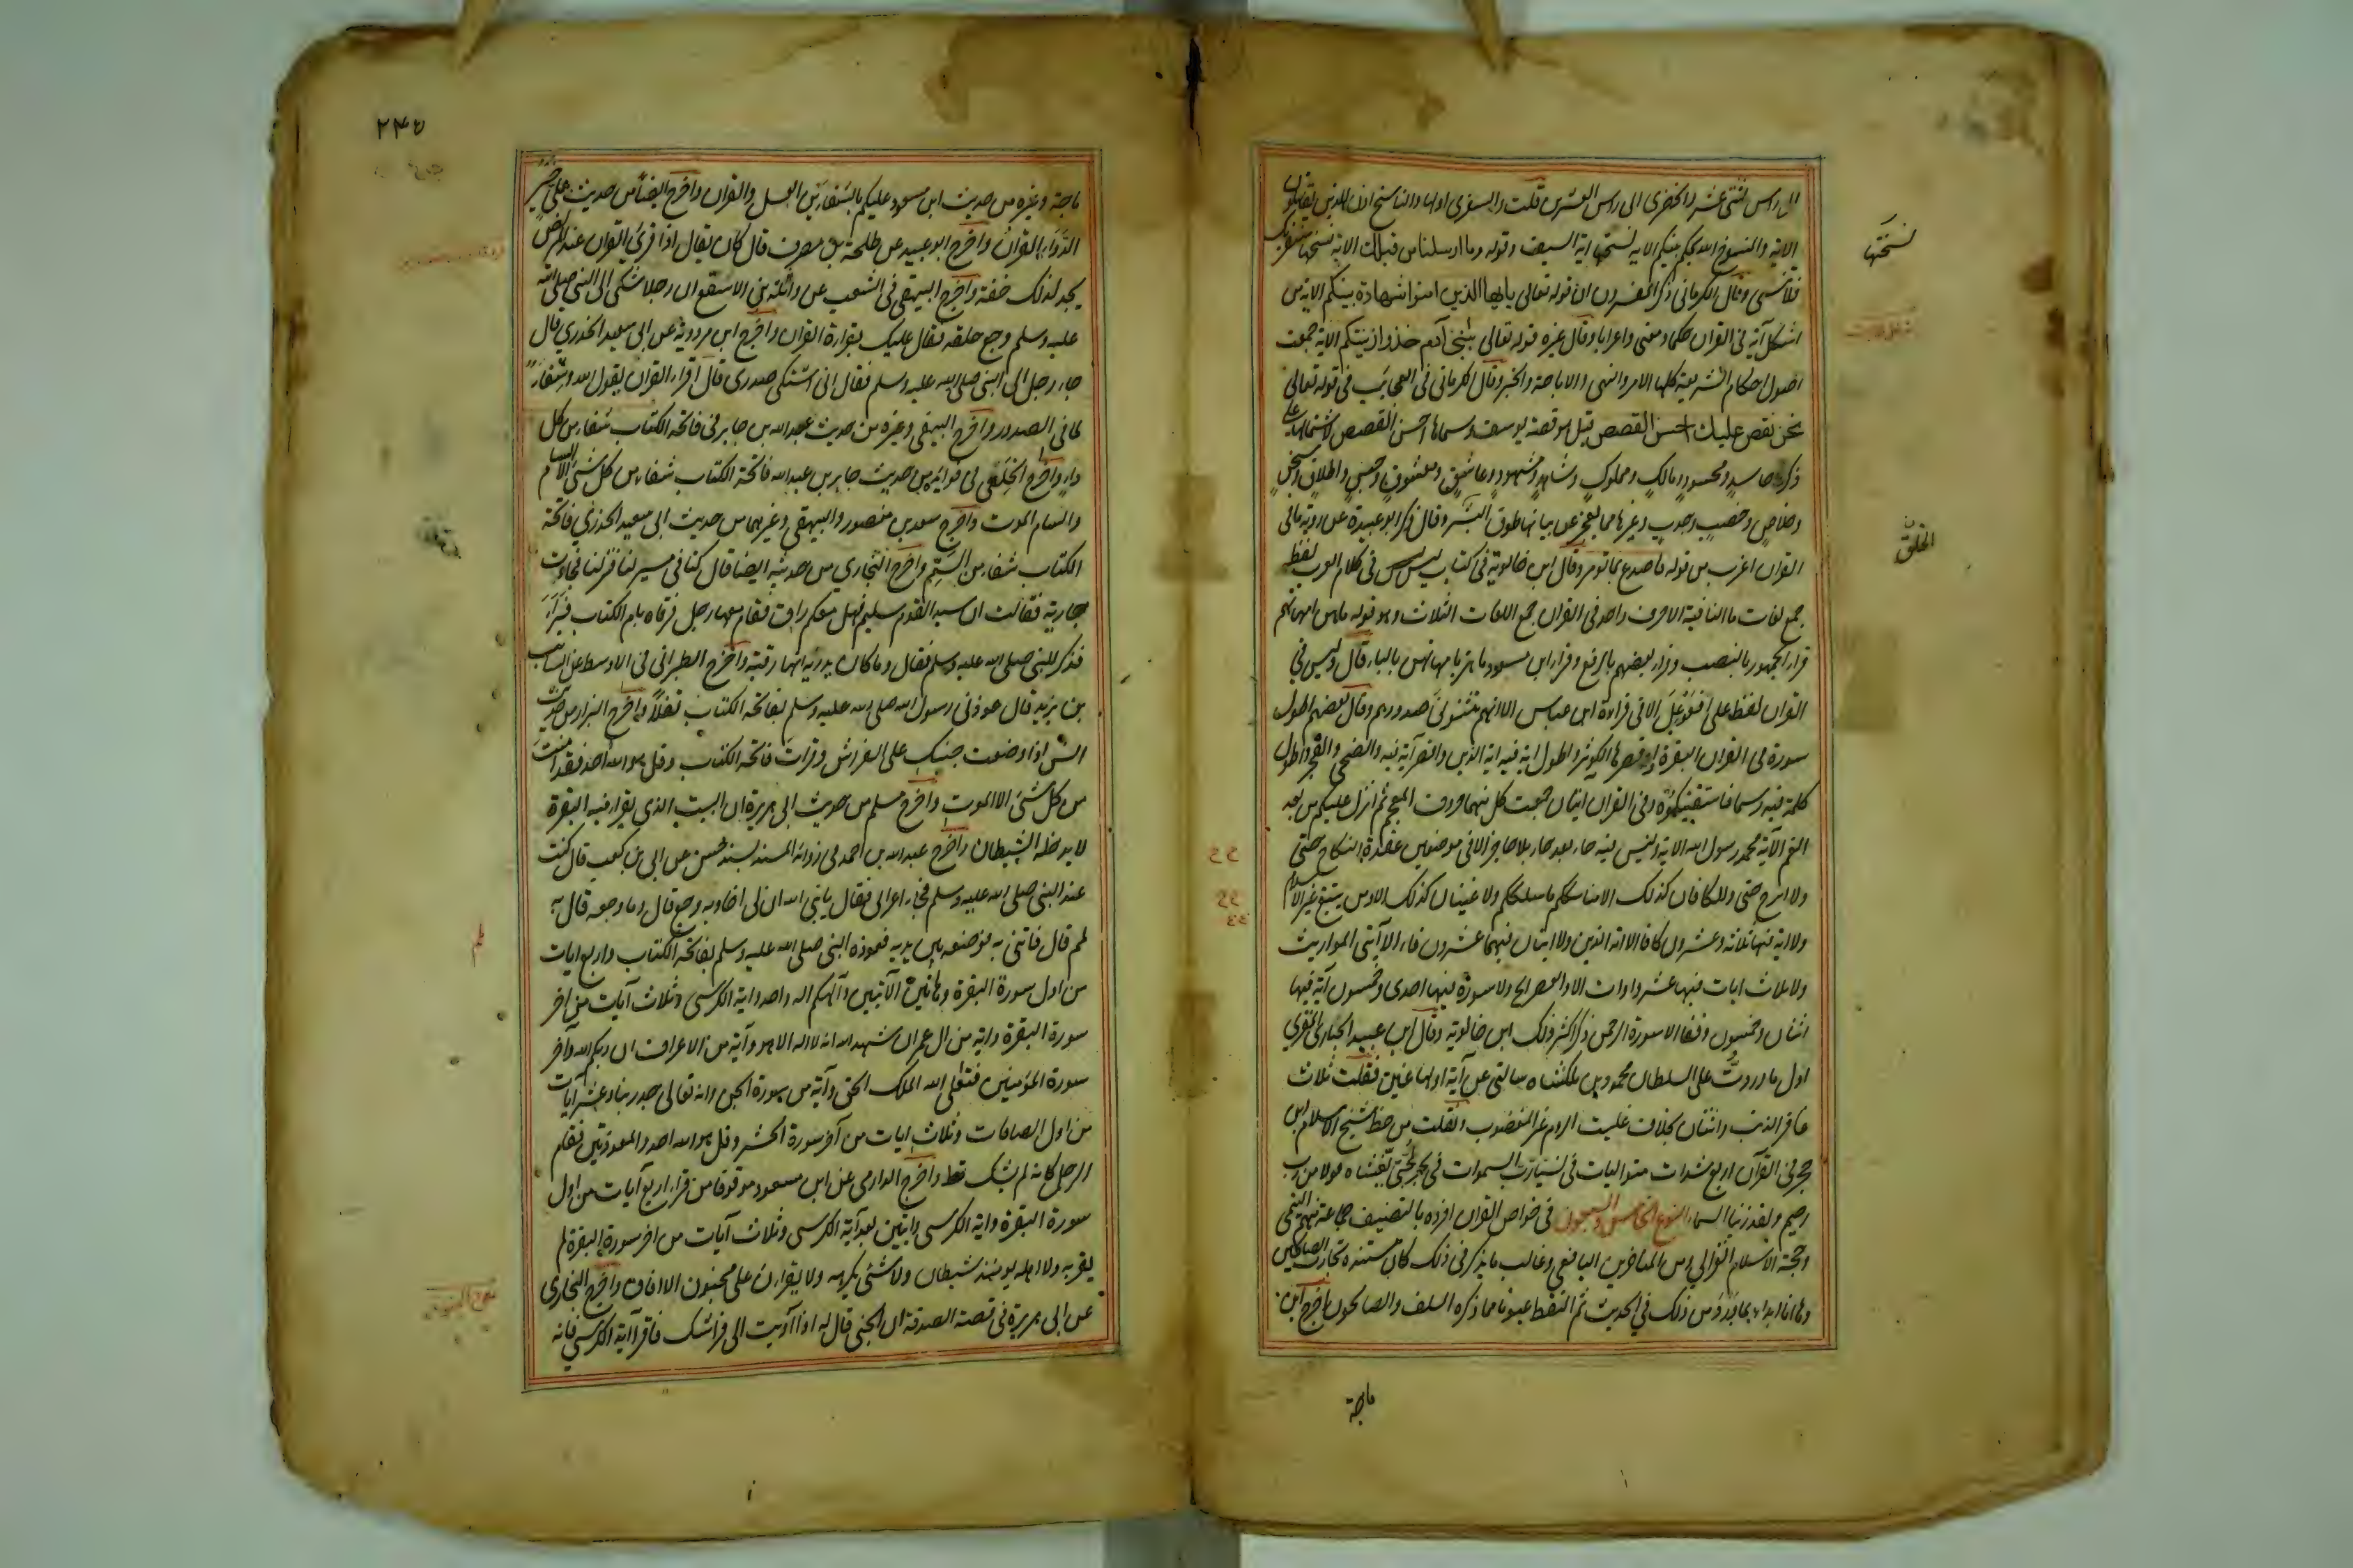 الى راس ثنتى عشر والحضرى الى راس العشرين قلت والسفرى اولها والناسخ اذن للذين يقاتلون
الاية والمنسوخ الله يحكم بينكم الاية نسختها اية السيف وقوله وما ارسلنا من قبلك الاية نسختها سنقرئك
فلا تنسى وقال الكرمانى ذكر المفسرون ان قوله تعالى يايها الذين امنوا شهادة بينكم الاية من
اشكل آية فى القران حكما ومعنى واعرابا وقال غيره قوله تعالى يبنى آدم خذوا زينتكم الاية جمعت
اصول احكام الشريعة كلها الامر والنهى والاباحة والخبر وقال الكرمانى فى العجائب فى قوله تعالى
نحن نقص عليك احسن القصص قيل هو قصة يوسف وسماها احسن القصص لاشتمالها على
ذكر حاسد ومحسود ومالك ومملوك وشاهد ومشهود وعاشق ومعشوق وحبس واطلاق وسجن
وخلاص وخصب وجدب وغيرها مما يعجز عن بيانها طوق البشر وقال ذكر ابو عبيدة عن روبة مافى
القران اغرب من قوله فاصدع بما تومر وقال ابن خالوية فى كتاب ليس ليس فى كلام العرب لفظ
جمع لغات ما النافية الا حرف واحد فى القران جمع اللغات الثلاث وهو قوله ماهن امهاتهم
قرا الجمهور بالنصب وقرا بعضهم بالرفع وقرا ابن مسعود ماهن بامهاتهم بالباء قال وليس فى
القران لفظ على افعوعل الا فى قراءة ابن عباس الا انهم تثنونى صدورهم وقال بعضهم اطول
سورة فى القران البقرة واقصرها الكوثر واطول اية فيه اية الدين واقصر آية فيه والضحى والفجر واطول
كلمة فيه رسما فاسقينكموه وفى القران ايتان جمعت كل منهما حروف المعجم ثم انزل عليكم من بعد
الغم الآية محمد رسول الله الاية وليس فيه حاء بعد حاء بلا حاجز الا فى موضعين عقدة النكاح حتى
ولا ابرح حتى ولا كافان كذلك الا مناسككم ماسلككم ولا غينان كذلك الا ومن يبتغ غير الاسلام
ولا اية فيها ثلاثة وعشرون كافا الا اية الدين ولا ايتان فيهما عشرون فاء الا آيتى المواريث
ولا ثلاث ايات فيها عشر واوات الا والعصر الخ ولا سورة فيها احدى وخمسون آية فيها
اثنان وخمسون وقفا الا سورة الرحمن ذكر اكثر ذلك ابن خالوية وقال ابو عبيد الخبازى المقرى
اول ما وردت على السلطان محمود بن ملكشاه سالنى عن آية اولها غين فقلت ثلاث
غافر الذنب واثنتان بخلاف غلبت الروم غير المغضوب ونقلت من خط شيخ الاسلام ابن
حجر فى القرآن اربع شدات متواليات فى نسيا رب السموات فى بحر لجى يغشاه قولا من رب
رحيم ولقد زينا السماء النوع الخامس والسبعون فى خواص القران افرده بالتصنيف جماعة منهم التميمى
وحجة الاسلام الغزالى ومن المتاخرين اليافعى وغالب مايذكر فى ذلك كان مستنده تجارب الصالحين
وها انا ابدا بما ورد من ذلك فى الحديث ثم التقط عيونا مما ذكره السلف والصالحون اخرج ابن
ماجة
نسختها
٢٤٥
ماجة وغيره من حديث ابن مسعود عليكم بالشفاءين العسل والقران واخرج ايضا من حديث على خير
الدواء القران واخرج ابو عبيد عن طلحة بن مصرف قال كان يقال اذا قرئ القران عند المريض
يجد لذلك خفة واخرج البيهقى فى الشعب عن واثلة بن الاسقع ان رجلا شكى الى النبى صلى الله
عليه وسلم وجع حلقه فقال عليك بقراءة القران واخرج ابن مردوية عن ابى سعيد الخدري قال
جاء رجل الى النبى صلى الله عليه وسلم فقال انى اشتكى صدرى قال اقراء القران يقول الله وشفاء
لما فى الصدور واخرج البيهقى وغيره من حديث عبد الله بن جابر فى فاتحة الكتاب شفاء من كل
داء واخرج الخلعى فى فوايده من حديث جابر بن عبد الله فاتحة الكتاب شفاء من كل شئ الا السام
والسام الموت واخرج سعيد بن منصور والبيهقى وغيرهما من حديث ابى سعيد الخدري فاتحة
الكتاب شفاء من السم واخرج البخارى من حديثه ايضا قال كنا فى مسير لنا فنزلنا فجاءت
جارية فقالت ان سيد القوم سليم فهل معكم راق فقام معها رجل فرقاه بام الكتاب فبرآء
فذكر للنبى صلى الله عليه وسلم فقال وما كان يدريه انها رقية واخرج الطبرانى فى الاوسط عن السائب
بن يزيد قال عوذنى رسول الله صلى الله عليه وسلم بفاتحة الكتاب تفلا واخرج البزار من حديث
انس اذا وضعت جنبك على الفراش وقرات فاتحة الكتاب وقل هو الله احد فقد امنت
من كل شئ الا الموت واخرج مسلم من حديث ابى هريرة ان البيت الذى يقرا فيه البقرة
لا يدخله الشيطان واخرج عبد الله بن احمد فى زوائد المسند بسند حسن عن ابى بن كعب قال كنت
عند النبى صلى الله عليه وسلم فجاء اعرابى فقال يا نبى الله ان لى اخا وبه وجع قال وما وجعه قال به
لمم قال فاتنى به فوضعه بين يديه فعوذه النبى صلى الله عليه وسلم بفاتحة الكتاب واربع ايات
من اول سورة البقرة وهاتين الآيتين والهكم اله واحد واية الكرسى وثلاث آيات من اخر
سورة البقرة واية من ال عمران شهد الله انه لا اله الا هو وآية من الاعراف ان ربكم الله وآخر
سورة المؤمنين فتعلى الله الملك الحق وآية من سورة الجن وانه تعالى جد ربنا وعشر آيات
من اول الصافات وثلاث ايات من آخر سورة الحشر وقل هو الله احد والمعوذتين فقام
الرجل كانه لم يشك قط واخرج الدارمى عن ابن مسعود موقوفا من قرا اربع آيات من اول
سورة البقرة واية الكرسى وايتين بعد آية الكرسى وثلاث آيات من اخر سورة البقرة لم
يقربه ولا اهله يومئذ شيطان ولا شئ يكرهه ولا يقران على مجنون الا افاق واخرج البخارى
عن ابى هريرة فى قصة الصدقة ان الجنى قال له اذا آويت الى فراشك فاقرا آية الكرسى فانه